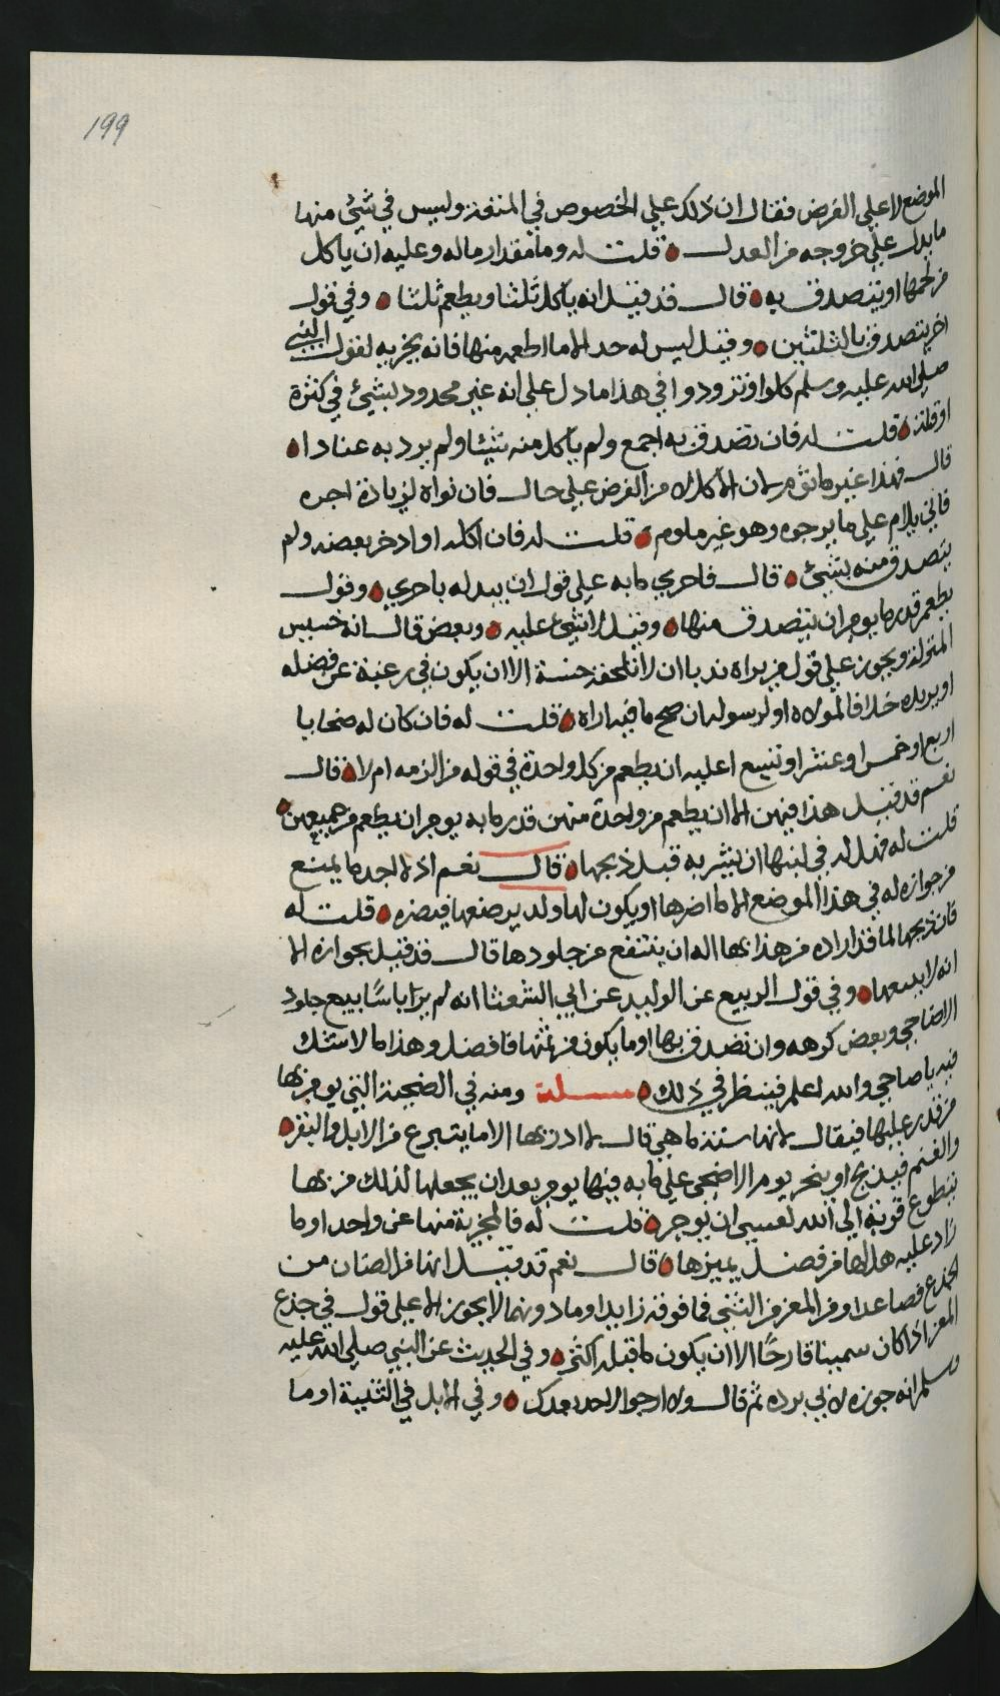 199
الموضع لا على الفرض فقال ان ذلك علي الخصوص في المتعة وليس في شئ منها
ما يدل علي خروجه من العدل قلت له وما مقدار ماله وعليه ان ياكل
من لحمها او يتصدق به قال قد قيل انه ياكل ثلثا ويطعم ثلثا وفي قول
اخر يتصدق بالثلثين وقيل ليس له حد الا ما اطعم منها فانه يجزيه لقول النبي
صلي الله عليه وسلم كلوا وتزودوا في هذا ما دل علي انه غير محدود بشئ في كثرة
او قلة قلت له فان تصدق به اجمع ولم ياكل منه شيئا ولم يرد به عنادا
قال فهذا غير ماثوم لان الاكل لا من الفرض علي حال فان نواه لزيادة اجره
فاني يلام علي ما يرجوه وهو غير ملوم قلت له فان اكله او ادخر بعضه ولم
يتصدق منه بشئ قال فاحري ما به علي قول ان يبدله باحري وقول
يطعم قدر ما يومر ان يتصدق منها وقيل لا شئ عليه وبعض قال انه خسيس
المنزلة ويجوز علي قول من يراه ندبا ان لا تلحقه خسة الا ان يكون في رغبة عن فضله
او يريده خلافا لمولاه او لرسوله ان صح ما فيه اراه قلت له فان كان له ضحايا
اربع او خمس او عشر او تسع اعليه ان يطعم من كل واحدة في قوله من الزمه ام لا قال
نعم قد قيل هذا فيهن الا ان يطعم من واحدة منهن قدر ما به يومر ان يطعم من جميعهن
قلت له فهل له في لبنها ان يشربه قبل ذبحها قال نعم اذ لا اجد ما يمنع
من جوازه له في هذا الموضع الا ما اضرها او يكون لها ولد يرضعها فيضره قلت له
فان ذبحها لما قد اراده من هذا بها اله ان ينتفع من جلودها قال قد قيل بجوازه الا
انه لا يبيعها وفي قول الربيع عن الوليد عن ابي الشعثا انه لم ير باسا ببيع جلود
الاضاحي وبعض كرهه وان تصدق بها او ما يكون من ثمنها فافضل وهذا ما لا شك
فيه يا صاحبي والله اعلم فينظر في ذلك مسـلة ومنه في الضحية التي يومر بها
من قدر عليها فيقال بانها سنة ما هي قال لا ادر بها الا ما يتبرع من الابل والبقر
والغنم فيذبح او ينحر يوم الاضحي علي ما به فيها يومر بعد ان يجعلها لذلك من بها
يتطوع قربة الي الله لعسي ان يوجر قلت له فالمجزية منها عن واحد او ما
زاد عليه هل لها من فضل يميزها قال نعم قد قيل انها من الضان من
الجذع فصاعدا ومن المعز من الثني فما فوقه زايدا وما دونهما لا يجوز الا علي قول في جذع
المعز اذا كان سمينا قارحا الا ان يكون ما قبله اكثر وفي الحديث عن النبي صلي الله عليه
وسلم انه جوزه لابي برده ثم قال ولا ارجو لاحد بعدك وفي الابل في الثنية او ما